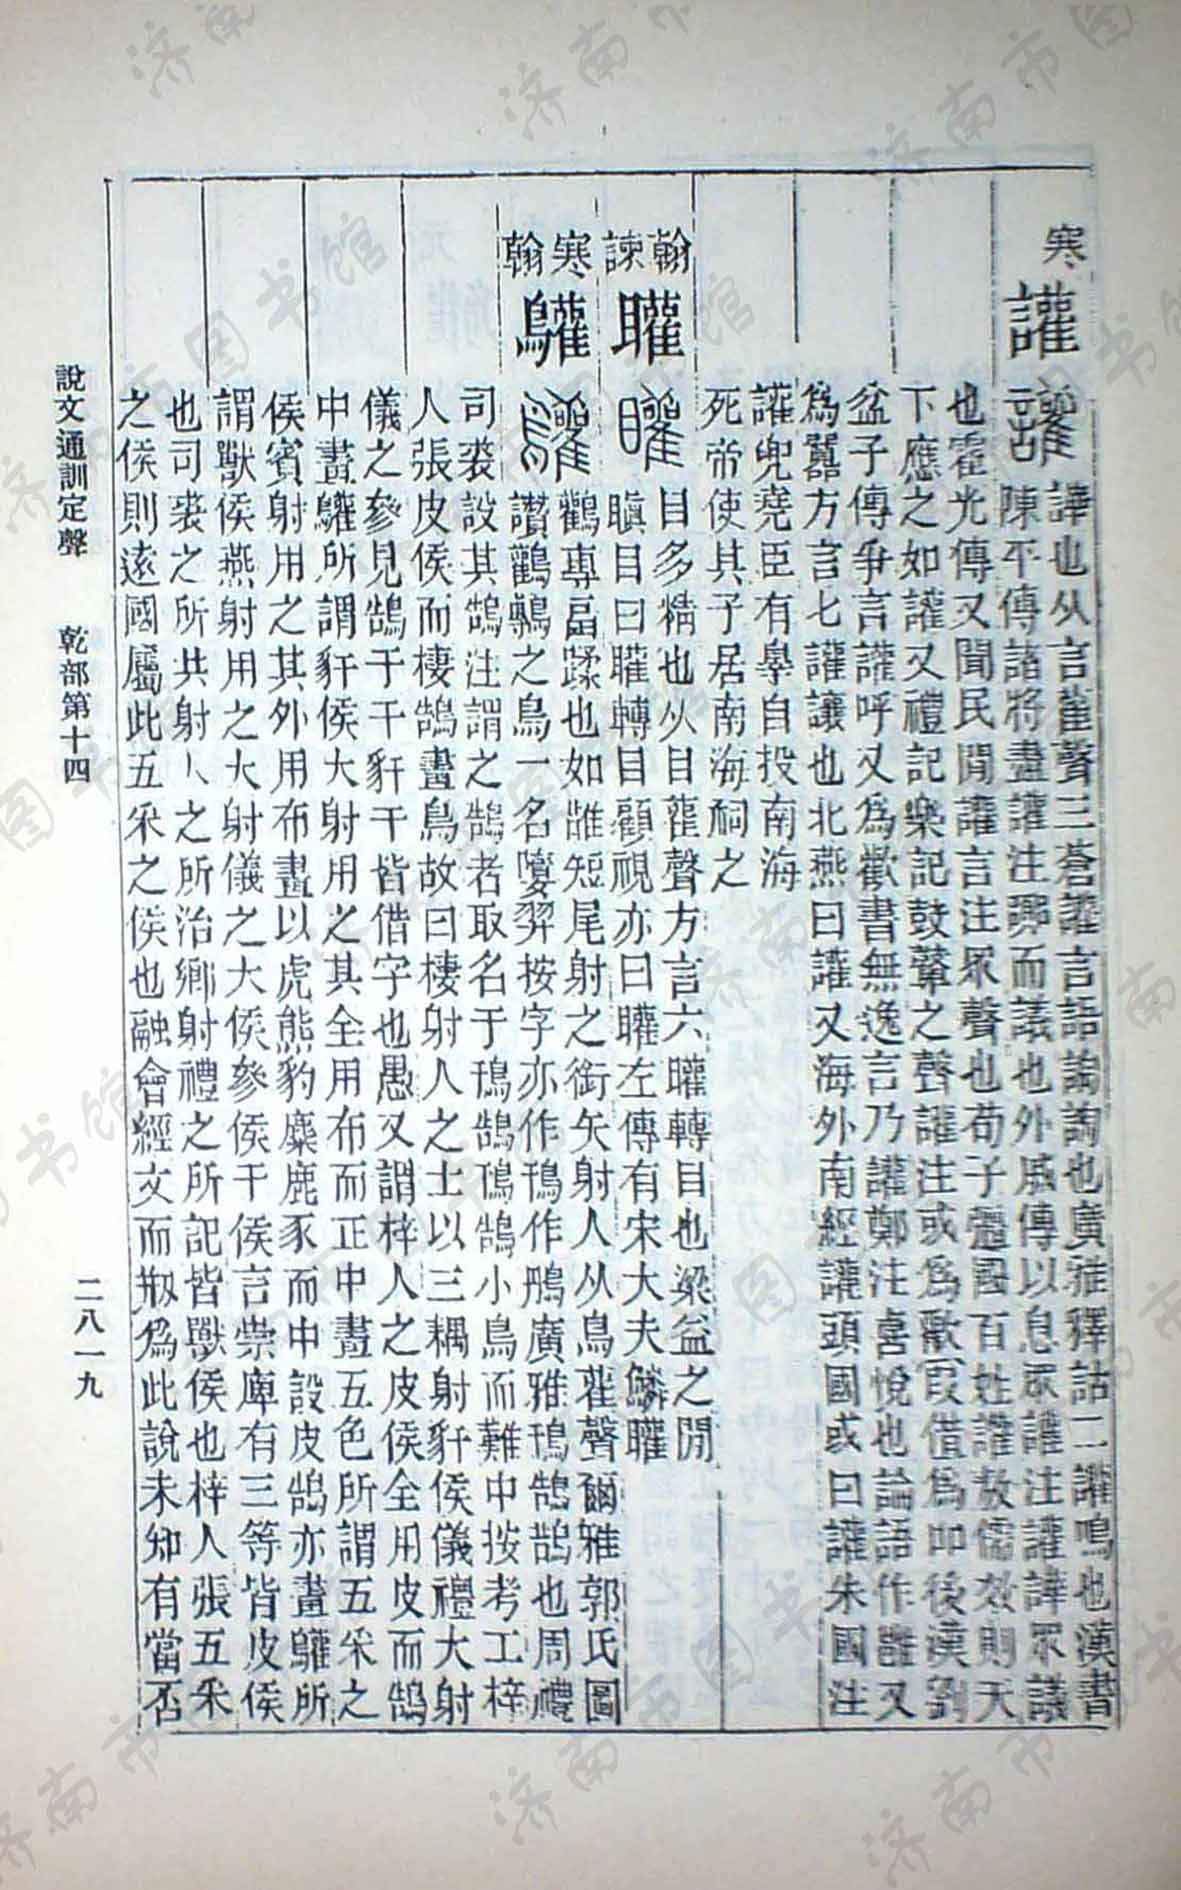 寒
讙
譁也从言雚聲三蒼讙言語譊譊也廣雅釋詁二讙鳴也漢書
陳平傳諸將盡讙注囂而議也外戚傳以息眾讙注讙譁眾議
也霍光傳又聞民閒讙言注眾聲也荀子彊國百姓讙敖儒效則天
下應之如讙又禮記樂記鼓鼙之聲讙注或為歡叚借為吅後漢劉
盆子傳爭言讙呼又為歡書無逸言乃讙鄭注喜悅也論語作雝又
為嚚方言七讙讓也北燕曰讙又海外南經讙頭國或曰讙朱國注
讙兜堯臣有辠自投南海
死帝使其子居南海祠之
翰
諫
矔
目多精也从目雚聲方言六矔轉目也梁益之閒
瞋目曰矔轉目顧視亦曰矔左傳有宋大夫鱗矔
寒
翰
鸛
鸛專畐蹂也如䧿短尾射之銜矢射人从鳥雚聲爾雅郭氏圖
讚鸛鷒之鳥一名㜸羿按字亦作鳱作鳽廣雅鳱鵠鵲也周禮
司裘設其鵠注謂之鵠者取名于鳱鵠鳱鵠小鳥而難中按考工梓
人張皮侯而棲鵠畫鳥故曰棲射人之士以三耦射豻侯儀禮大射
儀之參見鵠于干豻干皆借字也愚又謂梓人之皮侯全用皮而鵠
中畫鸛所謂豻侯大射用之其全用布而正中畫五色所謂五采之
侯賓射用之其外用布畫以虎熊豹麋鹿豕而中設皮鵠亦畫鸛所
謂獸侯燕射用之大射儀之大侯參侯干侯言崇庳有三等皆皮侯
也司裘之所共射人之所治鄉射禮之所記皆獸侯也梓人張五采
之侯則遠國屬此五采之侯也融會經文而剏為此說未知有當否
說文通訓定聲　乾部第十四
二八一九